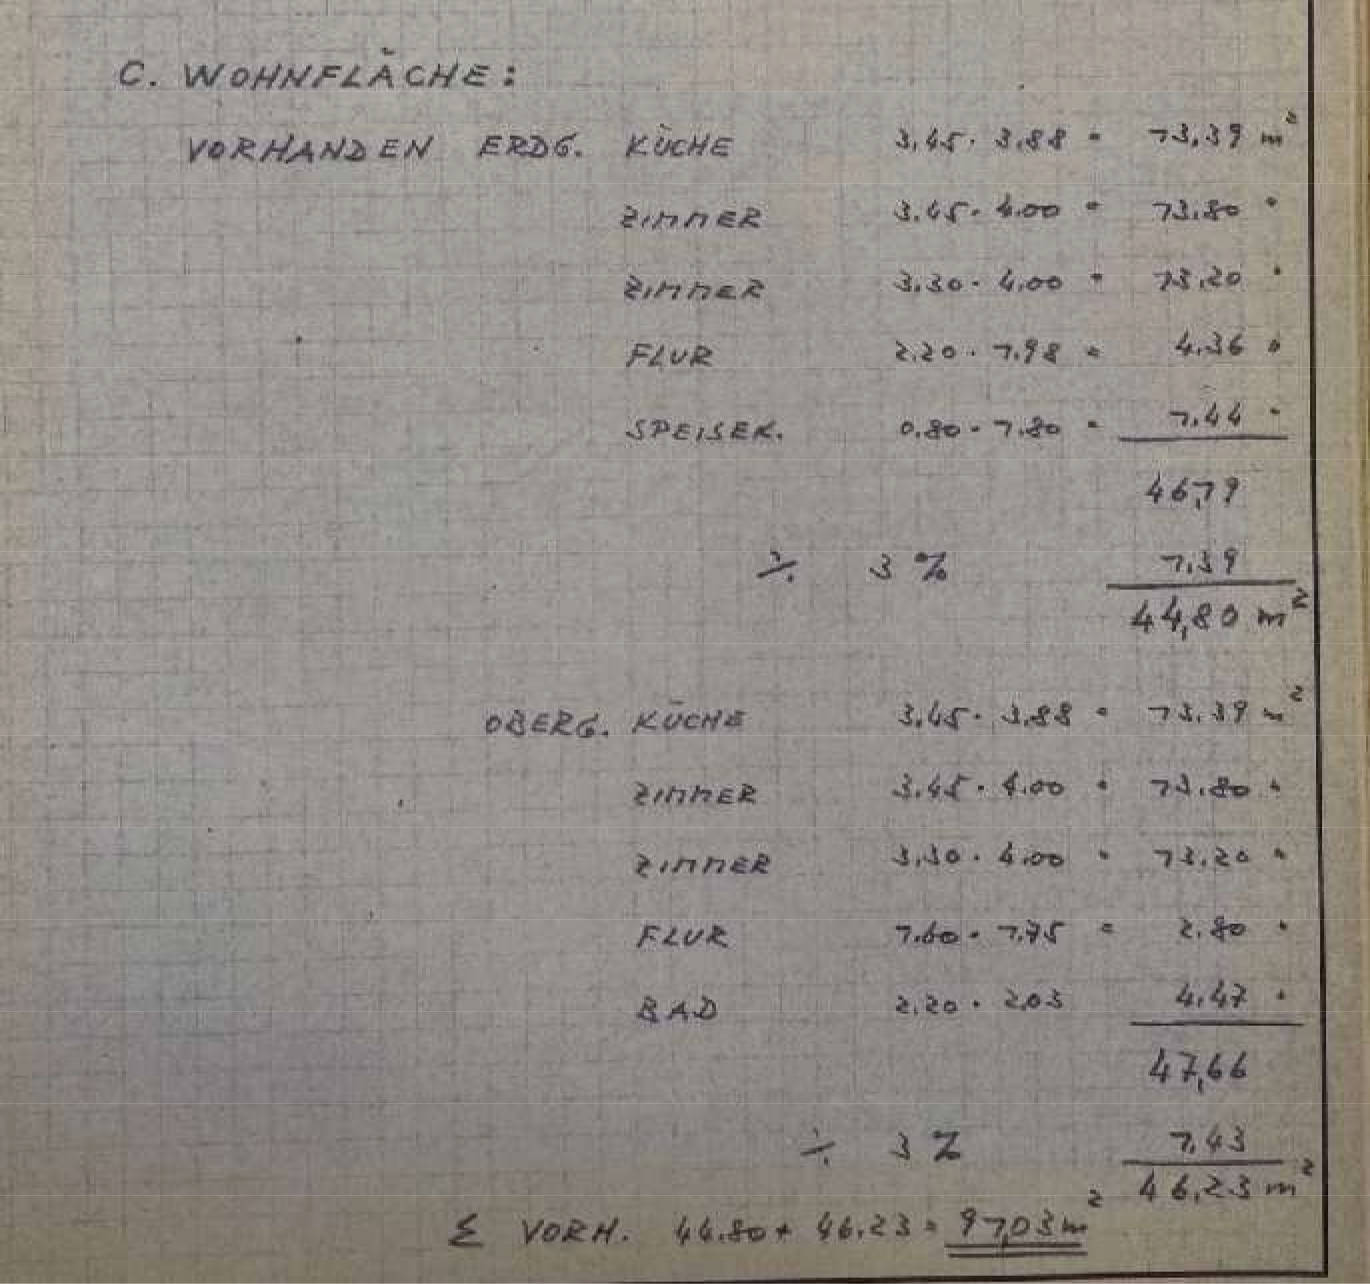 C. WOHNFLÄCHE:
VORHANDEN ERDG. KÜCHE 3.45 · 3.88 = 13,39 m²
ZIMMER 3.45 · 4.00 = 13.80 "
ZIMMER 3.30 · 4.00 = 13.20 "
FLUR 2.20 · 1.98 = 4.36 "
SPEISEK. 0.80 · 1.80 = 1.44 "
46,19
÷ 3 % 1.39
44,80 m²
OBERG. KÜCHE 3.45 · 3.88 = 13.39 m²
ZIMMER 3.45 · 4.00 = 13.80 "
ZIMMER 3.30 · 4.00 = 13.20 "
FLUR 1.60 · 1.75 = 2.80 "
BAD 2.20 · 2.03 4.47 "
47,66
÷ 3 % 1,43
46,23 m²
Σ VORH. 44.80 + 46.23 = 91,03 m²